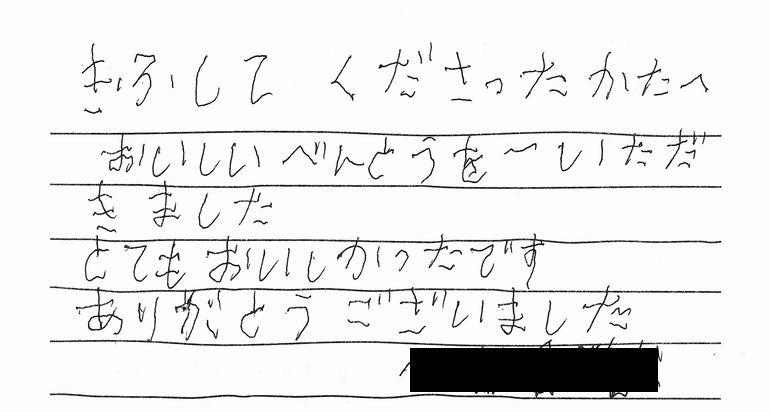 きふして くださったかたへ
おいしいべんとうを〜いただ
きました
とてもおいしかったです
ありがとう ございました